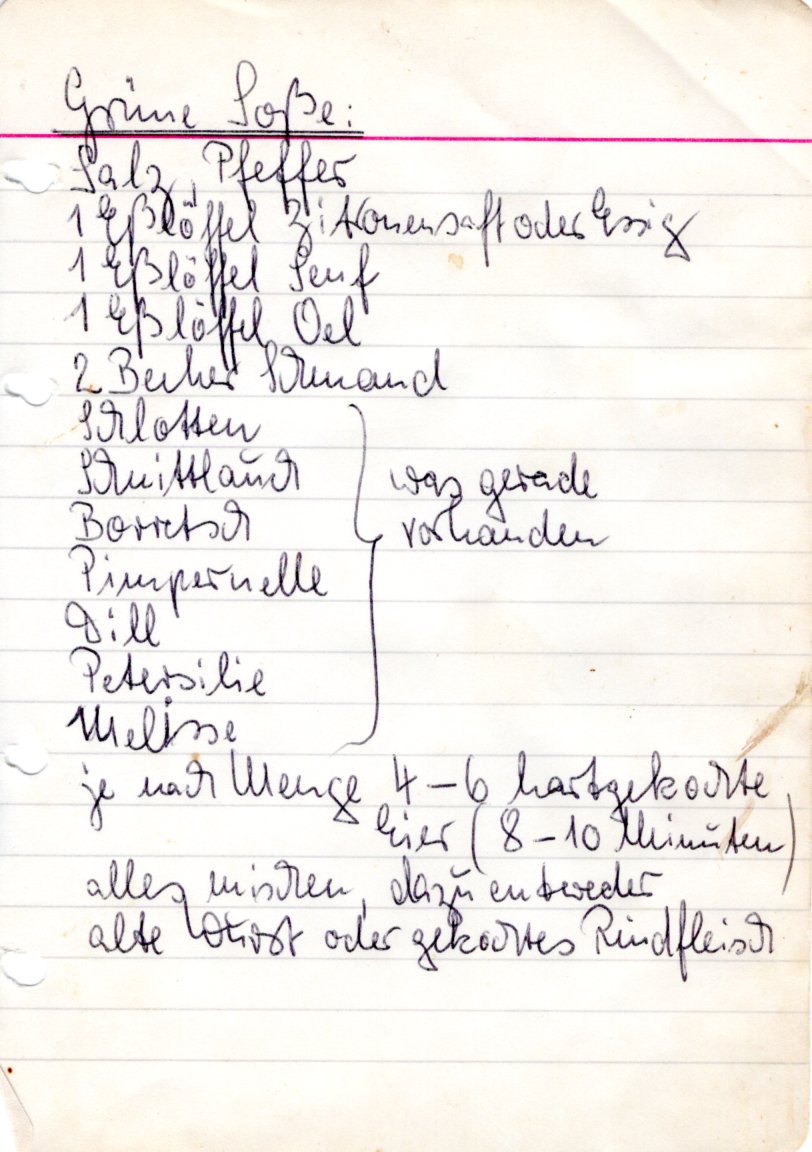 Grüne Soße:
Salz, Pfeffer
1 Eßlöffel Zitronensaft oder Essig
1 Eßlöffel Senf
1 Eßlöffel Oel
2 Becher Schmand
Schlotten
Schnittlauch
Borretsch
Pimpernelle
Dill
Petersilie
Melisse
was gerade
vorhanden
je nach Menge 4–6 hartgekochte
Eier (8–10 Minuten)
alles mischen, dazu entweder
alte Wurst oder gekochtes Rindfleisch